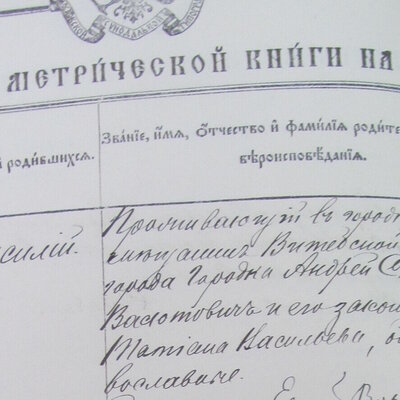 СѴНОДАЛЬНОЙ
МЕТРИ́ЧЕСКОЙ КНИ́ГИ НА
родившихся.
Зва́нїе, и́мя, ѻ҆́тчество и҆ фами́лїѧ родите
вѣроисповѣ́данїѧ.
силій.
Проживающій въ город
мѣщанинъ Витебской
города Городка Андрей
Васютовичъ и его закон
Татіана Васильева, о
вославные.